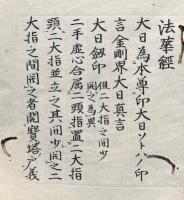 法華經
大日為本尊印大日ノト、ハ印
言金剛界大日真言
大日劔印 但二大指之間少
開之為異
二手虛心合屈二頭指置二大指
頭二大指並立之其間少開之二
大指之間開之者開寶塔戶義